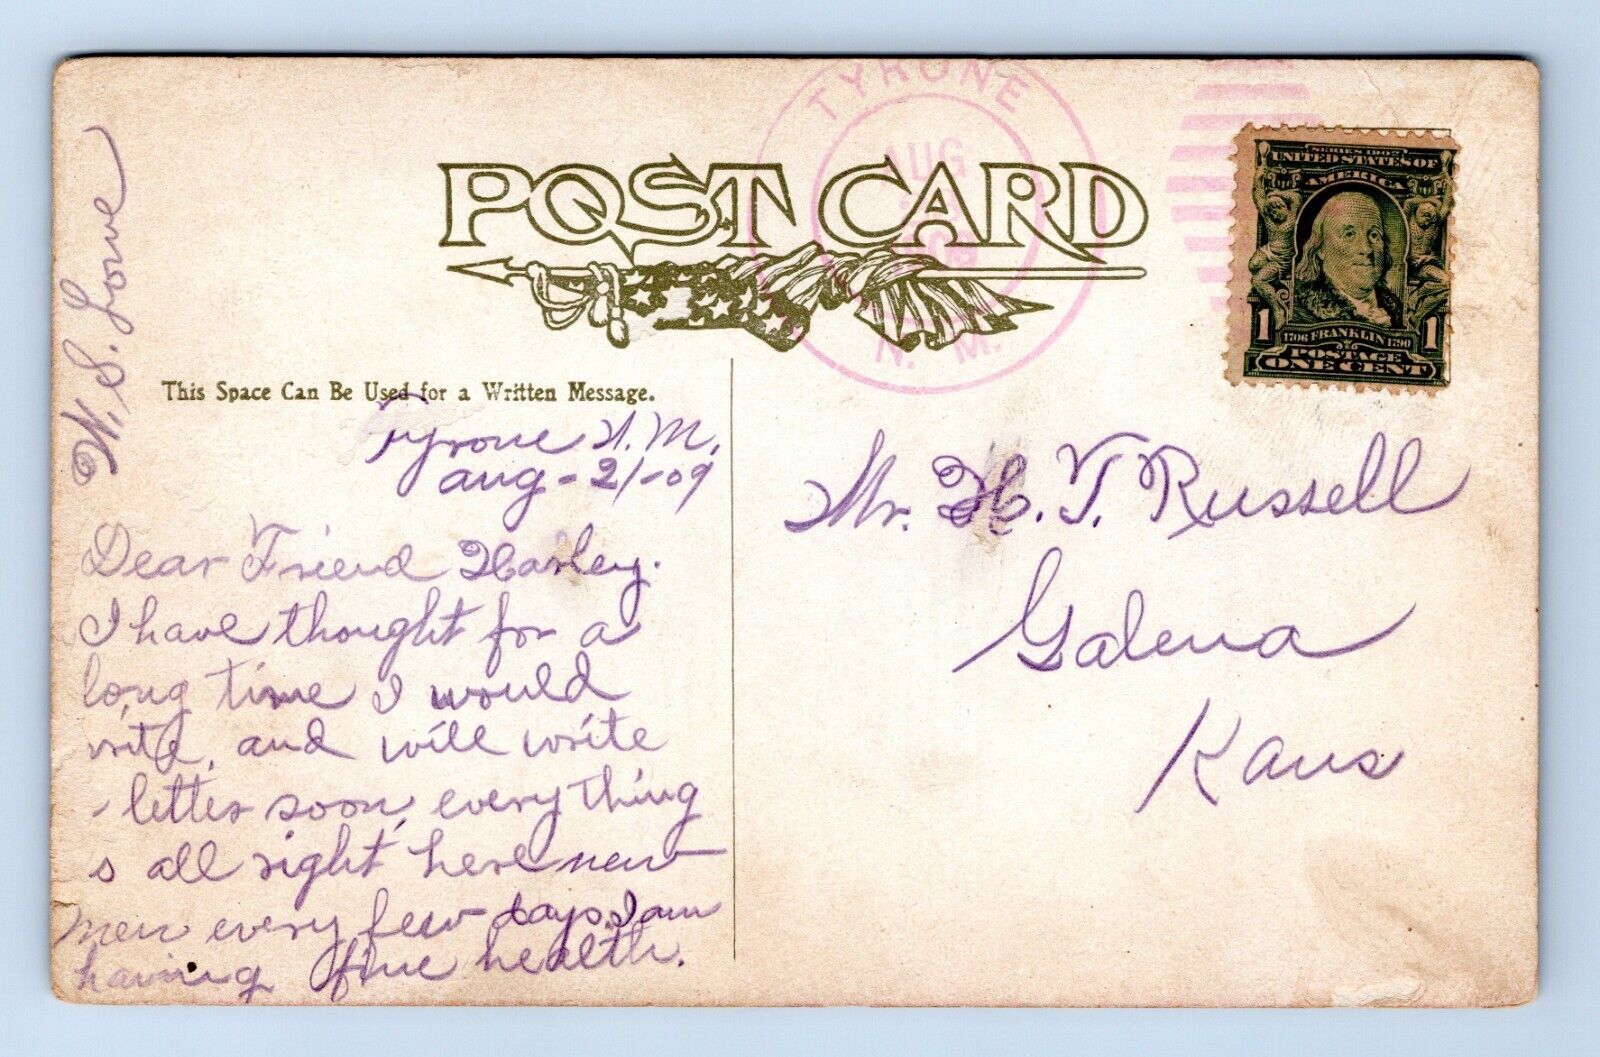 POST CARD
TYRONE
AUG
N. M.
SERIES 1902
UNITED STATES OF
AMERICA
1 1
1706 FRANKLIN 1790
POSTAGE
ONE CENT
This Space Can Be Used for a Written Message.
Tyrone N.M.
Aug-21-09
Dear Friend Harley.
I have thought for a
long time I would
write, and will write
letter soon, every thing
is all right here new
men every few days. I am
having fine health.
W. S. Lowe
Mr. H. T. Russell
Galena
Kans